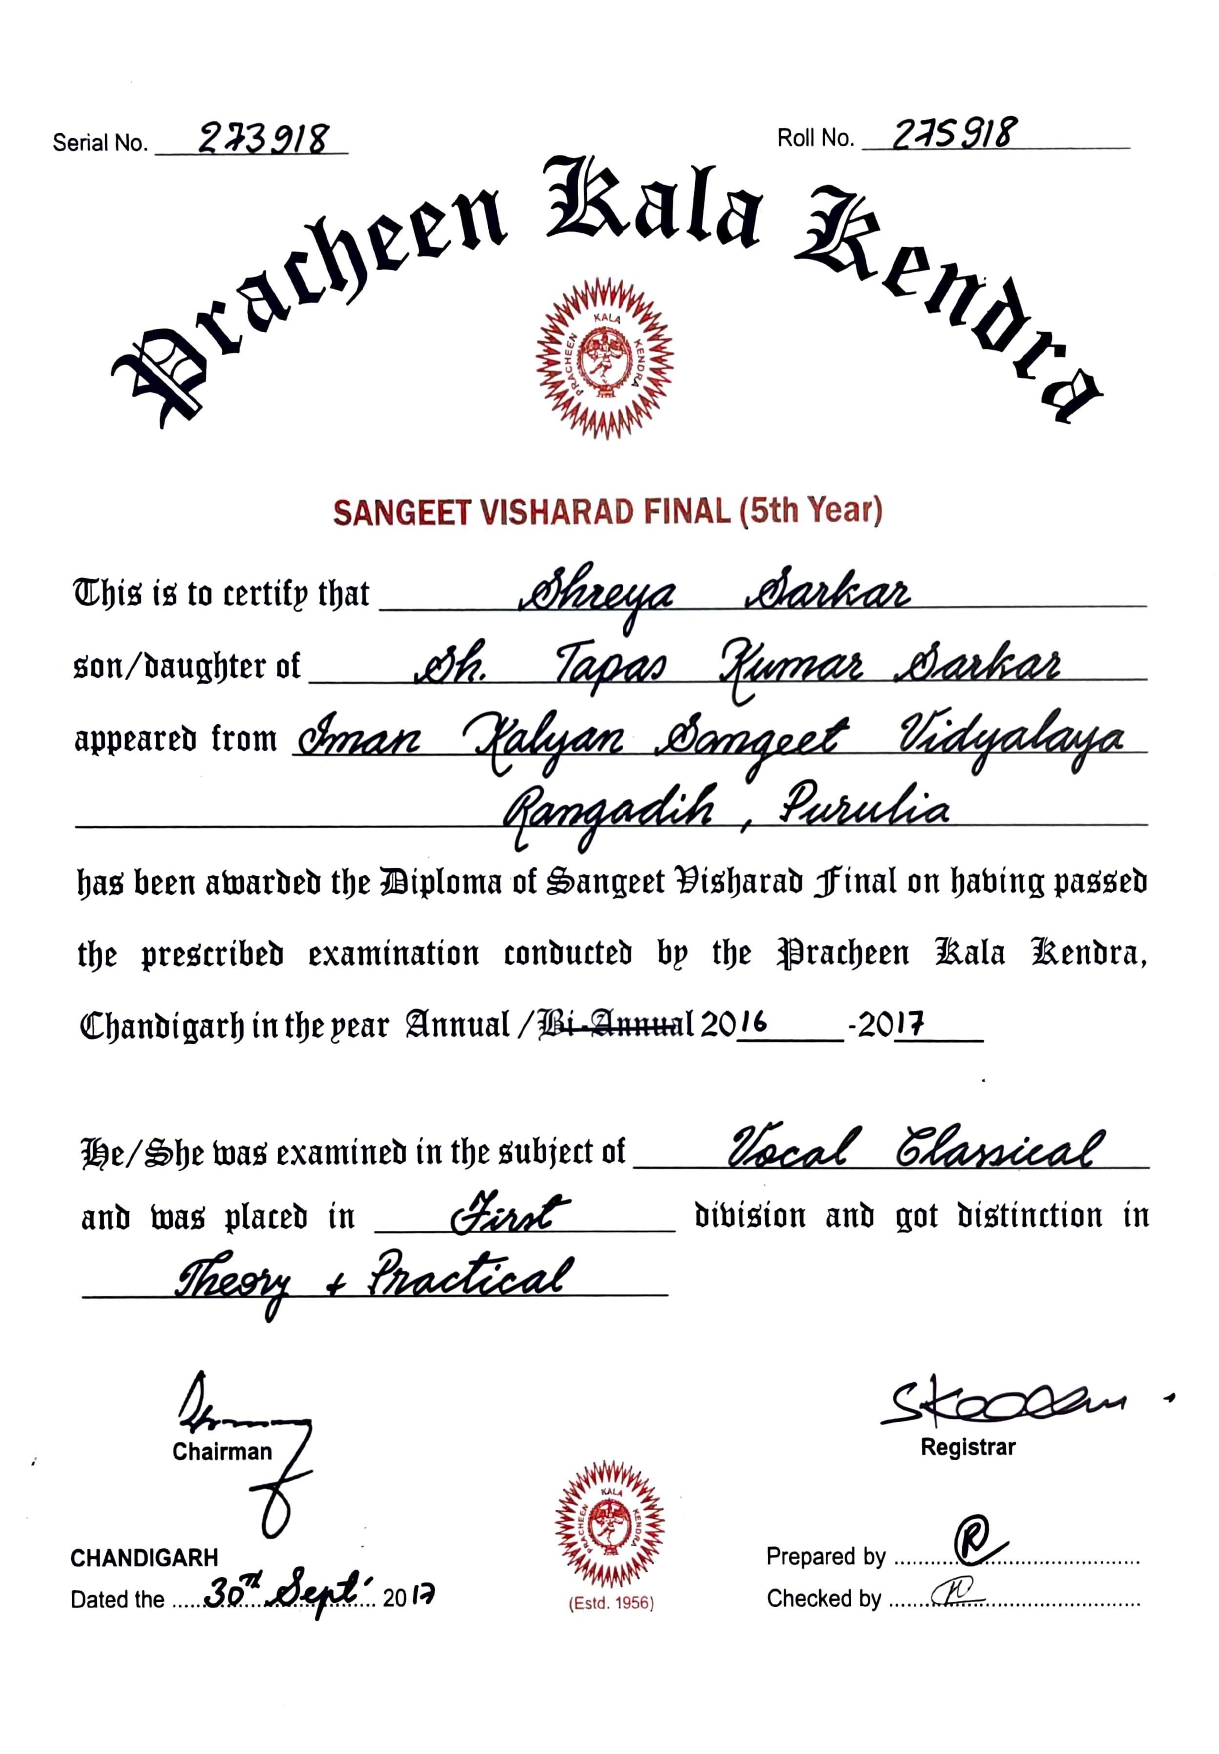 Serial No. 273918
Roll No. 275918
Pracheen Kala Kendra
PRACHEEN KALA KENDRA
SANGEET VISHARAD FINAL (5th Year)
This is to certify that Shreya Sarkar
son/daughter of Sh. Tapas Kumar Sarkar
appeared from Iman Kalyan Sangeet Vidyalaya
Rangadih, Purulia
has been awarded the Diploma of Sangeet Visharad Final on having passed
the prescribed examination conducted by the Pracheen Kala Kendra,
Chandigarh in the year Annual / Bi-Annual 2016 -2017
He/She was examined in the subject of Vocal Classical
and was placed in First division and got distinction in
Theory + Practical
Chairman
Registrar
PRACHEEN KALA KENDRA
(Estd. 1956)
CHANDIGARH
Dated the 30th Sept' 2017
Prepared by
Checked by